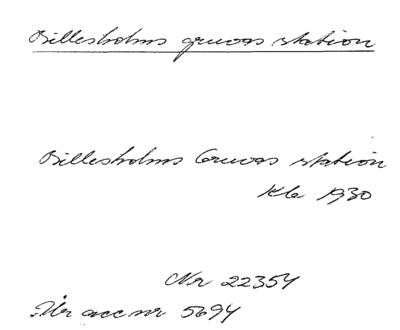 Billesholms gruvas station
Billesholms Gruvas station
Kla 1930
Nr 22354
Ur acc nr 5694